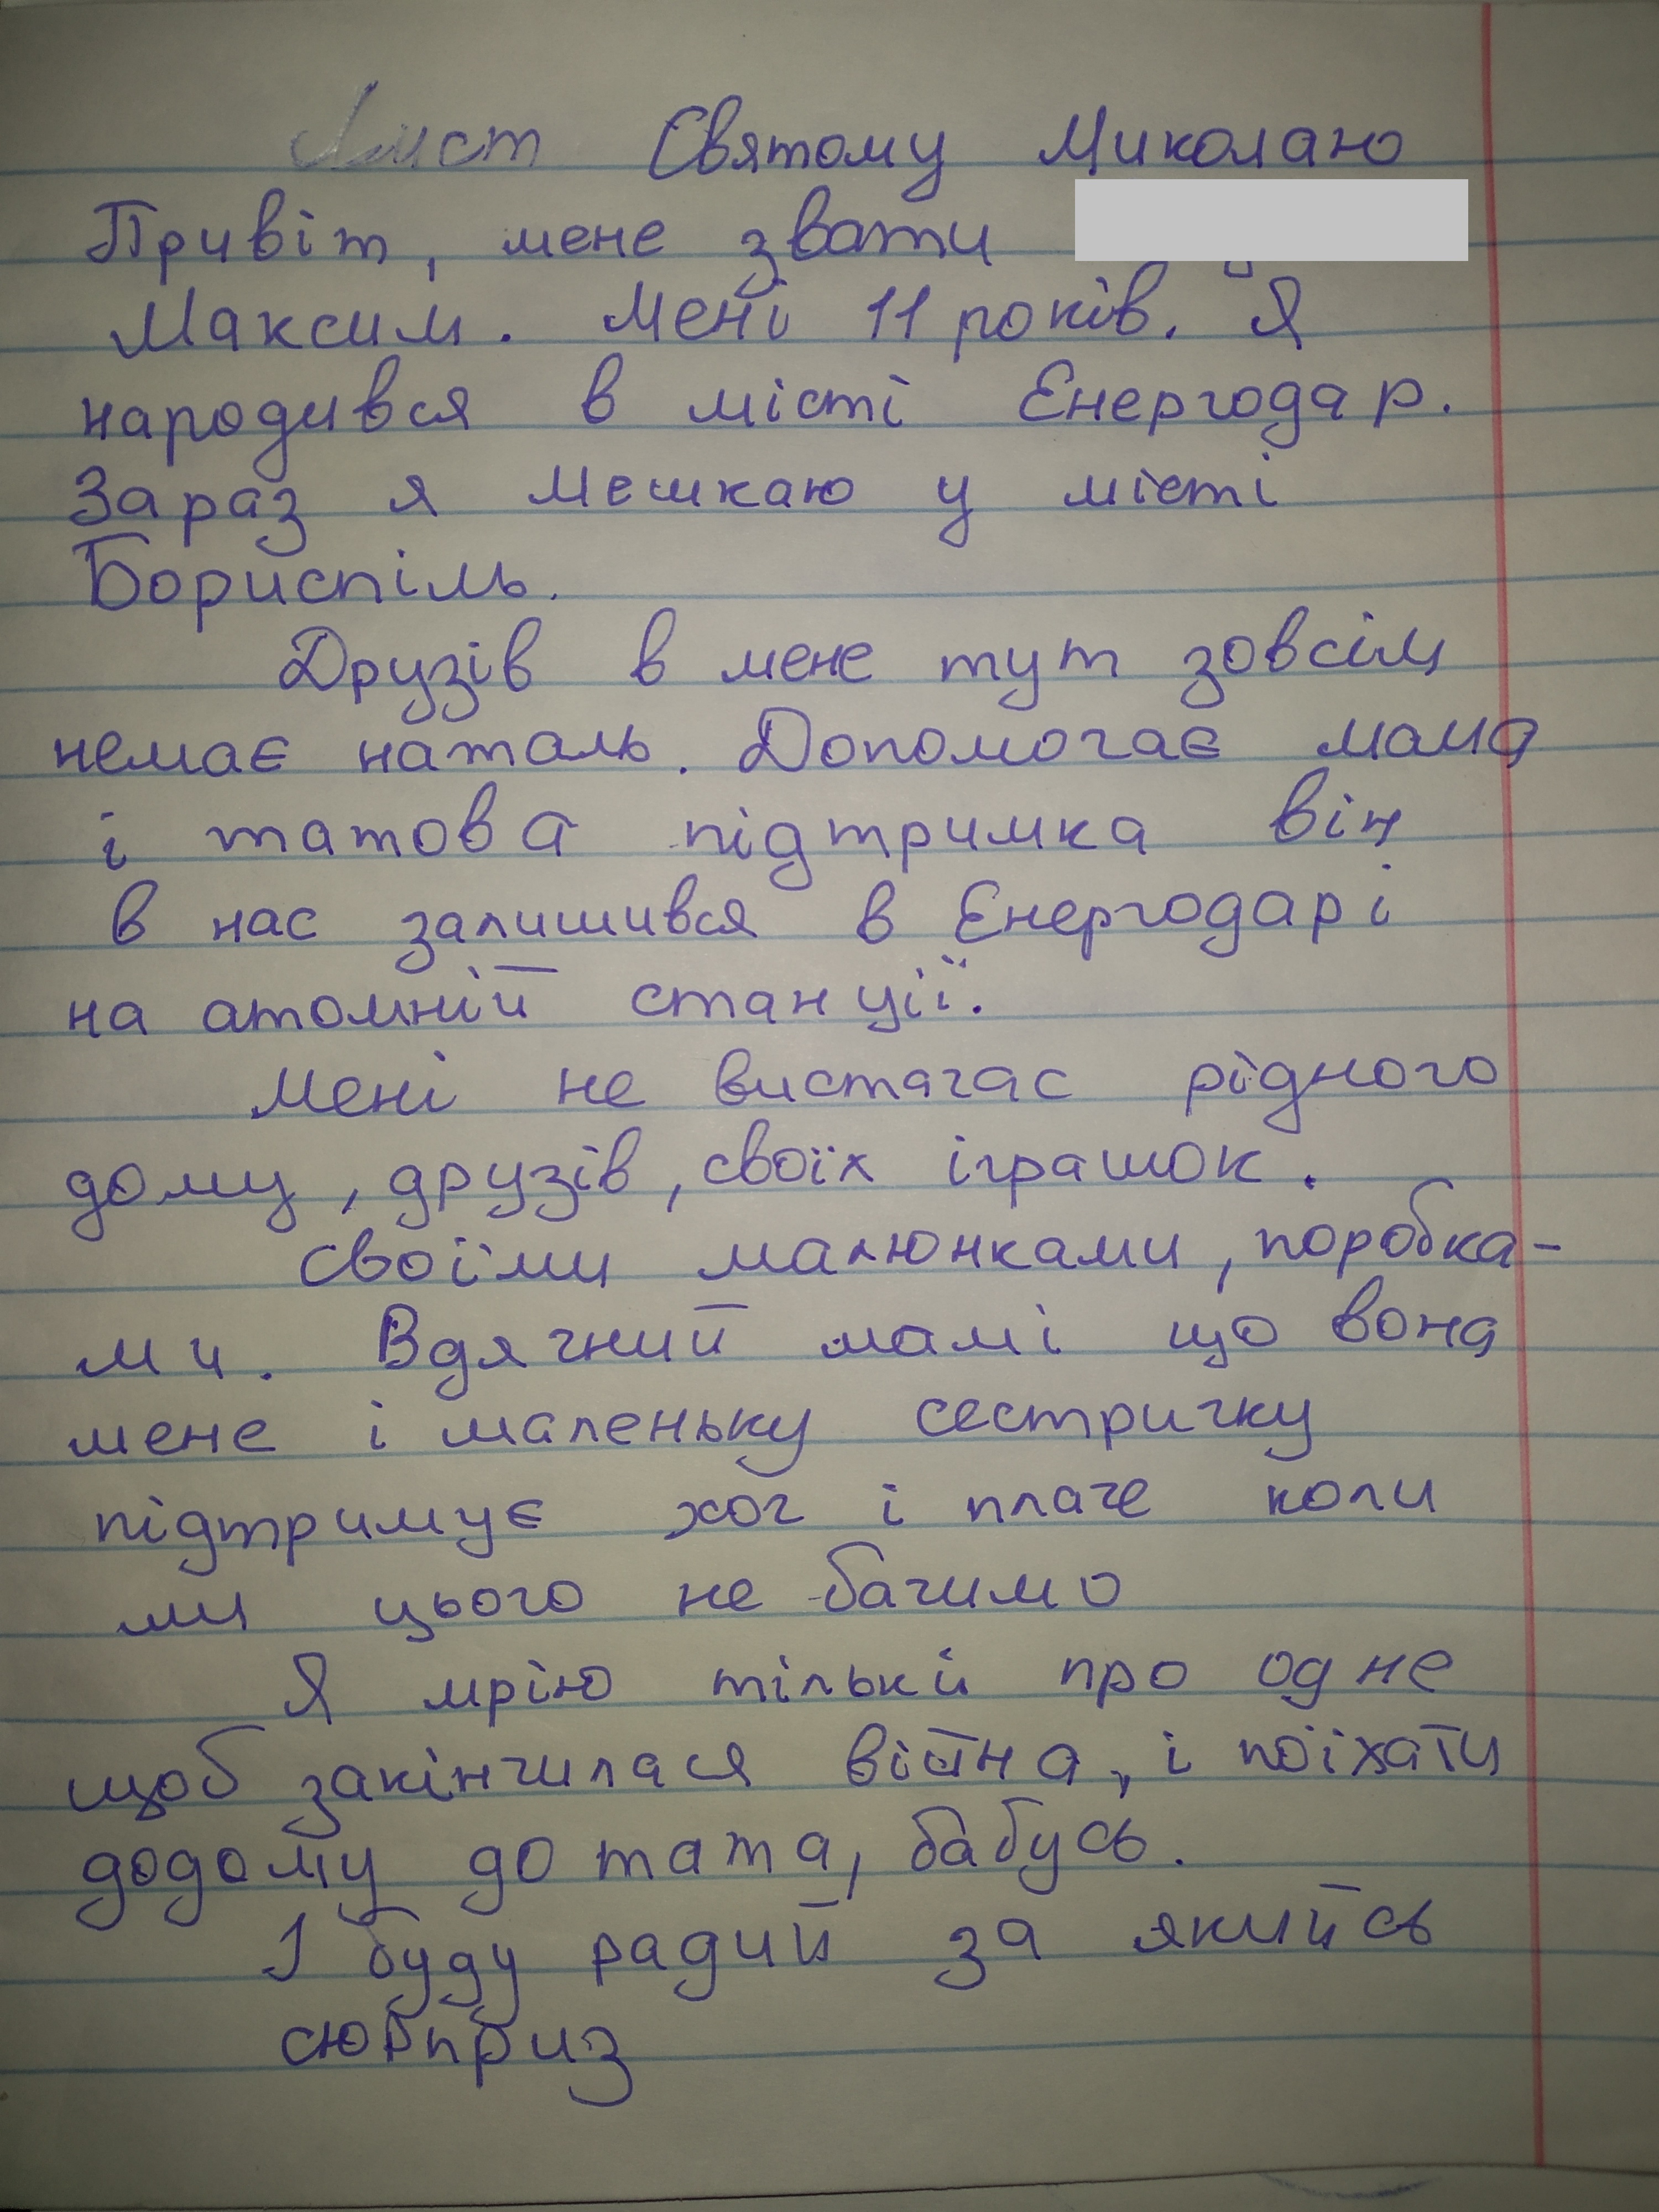 Лист Святому Миколаю
Привіт, мене звати
Максим. Мені 11 років. Я
народився в місті Енергодар.
Зараз я мешкаю у місті
Бориспіль.
Друзів в мене тут зовсім
немає наталь. Допомогає мама
і татова підтримка він
в нас залишився в Енергодарі
на атомній станції.
Мені не вистягає рідного
дому, друзів, своїх іграшок.
своїми малюнками, поробка-
ми. Вдячний мамі що вона
мене і маленьку сестричку
підтримує хоч і плаче коли
ми цього не бачимо
Я мрію тільки про одне
щоб закінчилася війна, і поїхати
додому до тата, бабусь.
І буду радий за якийсь
сюрприз